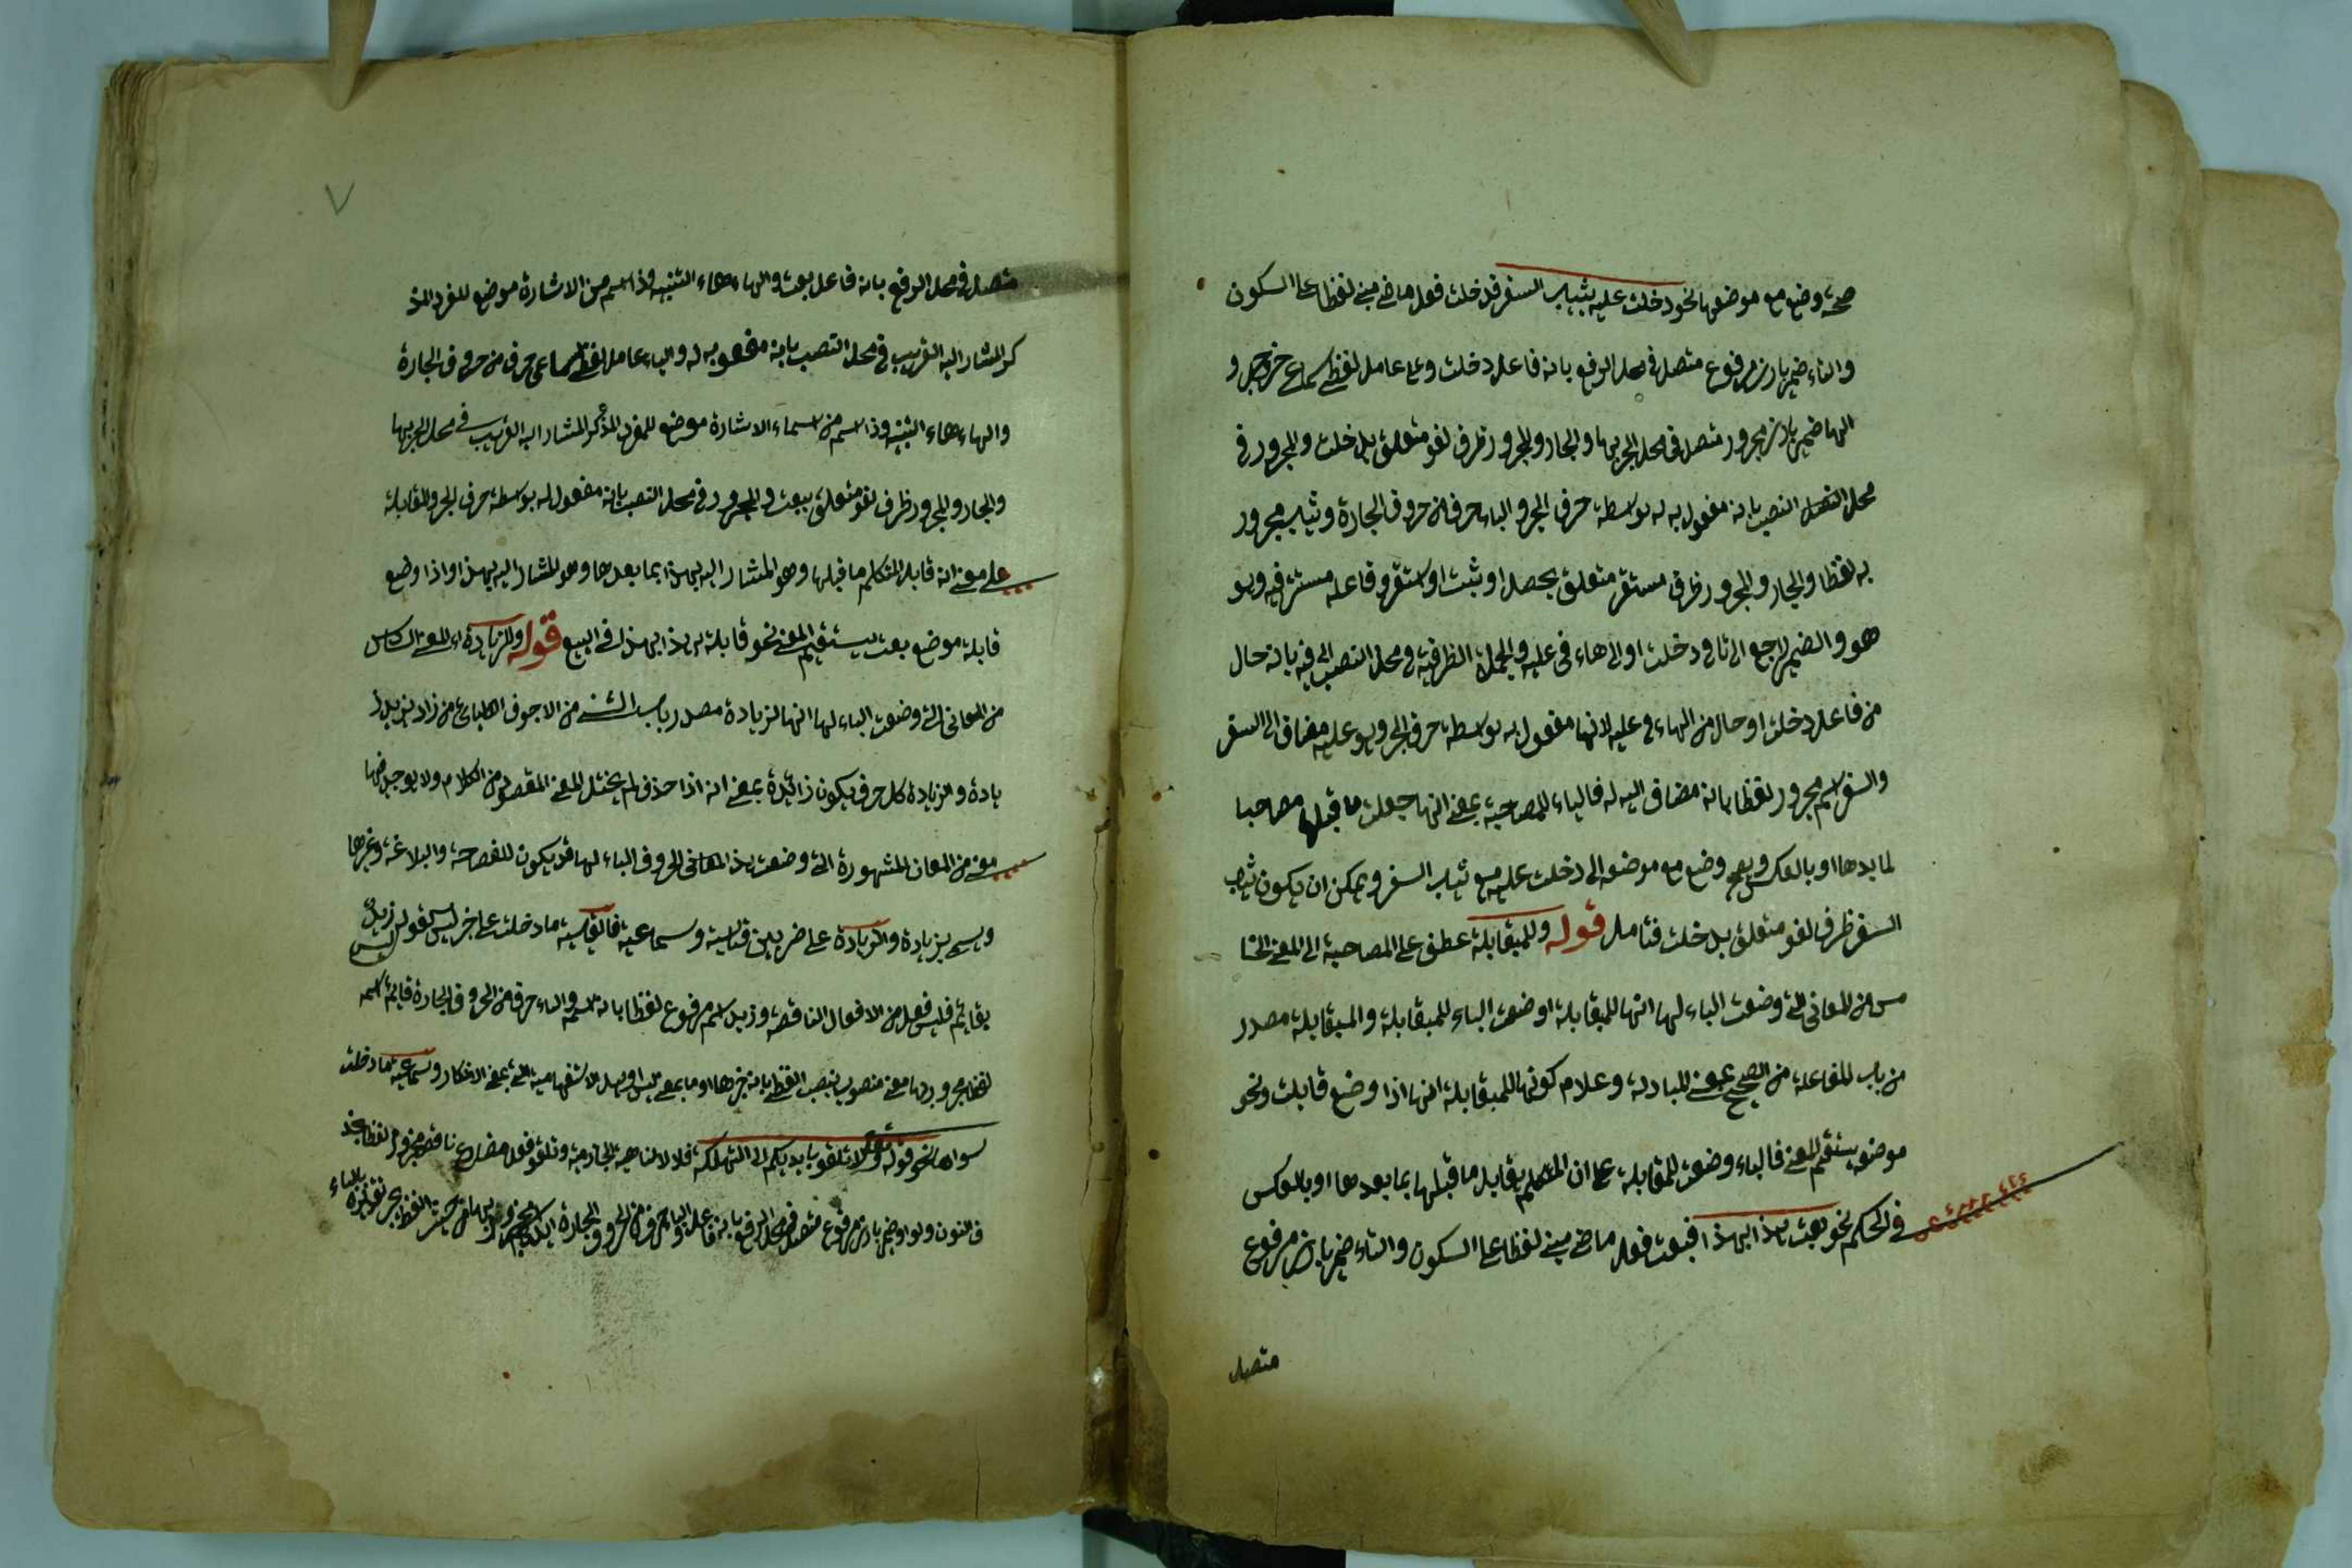 صحته وضع مع موضعها نحو دخلت عليه بثياب السفر فدخلت فعل ماضى مبنى لفظا على السكون
والتاء ضمير بارز مرفوع متصل فى محل الرفع بانه فاعل دخلت وعلى عامل لفظى سماعى و
الهاء ضمير بارز مجرور متصل فى محل الجر بها والجار والمجرور ظرف لغو متعلق بدخلت والمجرور فى
محل النصب بانه مفعول به له بوسطة حرف الجر والباء حرف من حروف الجارة وثياب مجرور
به لفظا والجار والمجرور ظرف مستقر متعلق بحصل او ثبت او استقر وفاعله مستتر فيه وهو
هو والضمير راجع الى تا فى دخلت او الى هاء فى عليه والجملة الظرفية فى محل النصب بانه حال
من فاعل دخلت او حال من الهاء فى عليه لانها مفعول به بوسطة حرف الجر وهو عليه مضاف الى السفر
والسفر اسم مجرور لفظا بانه مضاف اليه له فالباء للمصاحبة بمعنى انها جعلت ما قبلها مصاحبا
لما بعدها او بالعكس وضع مع موضعه اى دخلت عليه مع ثياب السفر ويمكن ان يكون بثياب
السفر ظرف لغو متعلق بدخلت فتامل قوله وللمقابلة عطف على المصاحبة اى المعنى الخا
مس من المعانى التى وضعت الباء لها انها للمقابلة او وضعت الباء للمقابلة والمقابلة مصدر
من باب المفاعلة من الصحيح بمعنى المبادلة وعلام كونها للمقابلة انها اذا وضع قابلت ونحو
موضعه يستقيم المعنى فالباء وضعت للمقابلة على ان المتكلم يقابل ما قبلها بما بعدها او بالعكس
فى الحكم نحو بعت هذا بهذا فبعت فعل ماضى مبنى لفظا على السكون والتاء ضمير بارز مرفوع
متصل
٧
متصل فى محل الرفع بانه فاعل بعت والهاء هاء التنبيه وذا اسم من الاشارة موضع للمفرد المذ
كر المشار اليه القريب فى محل النصب بانه مفعول به له والباء عامل لفظى سماعى حرف من حروف الجارة
والهاء هاء التنبيه وذا اسم من اسماء الاشارة موضع للمفرد المذكر المشار اليه القريب فى محل الجر بها
والجار والمجرور ظرف لغو متعلق ببعت والمجرور فى محل النصب بانه مفعول له بوسطة حرف الجر والمقابلة
على معنى انه قابل المتكلم ما قبلها وهو المشار اليه بهذا بما بعدها وهو المشار اليه بهذا واذا وضع
قابلة موضع بعت يستقيم المعنى نحو قابلة هذا بهذا فى البيع قوله وللزيادة اى المعنى السادس
من المعانى التى وضعت الباء لها انها لزيادة مصدر باب الثنى من الاجوف اليائى من زاد يزيد ز
يادة والزيادة كل حرف يكون زائدة بمعنى انه اذا حذف لم يختل المعنى المقصود من الكلام ولا يوجد فيها
معنى من المعان المشهورة التى وضعت هذا المعانى الحروف الباء لها قد يكون للفصاحة والبلاغة وغيرها
ويسمى بزيادة والزيادة على ضربين قياسية وسماعية فالقياسية ما دخلت على خبر ليس كقولك ليس زيد
بقائم فليس فعل من الافعال الناقصة وزيد اسم مرفوع لفظا بانه اسمه والباء حرف من الحروف الجارة قائم اسم
لفظا مجرور بها معنى منصوب بنصب اللفظى بانه خبرها او ما بمعنى ليس او بهل الاستفهامية التى بمعنى الانكار وسماعية ما دخلت
سواها نحو قوله تعالى ولا تلقو بايديكم الى التهلكة فلا لا الناهية الجازمة وتلقو فعل مضارع ناقص مجزوم لفظا بحذ
ف النون والواو ضمير بارز مرفوع متصل فى محل الرفع بانه فاعله والباء حرف من الحروف الجارة